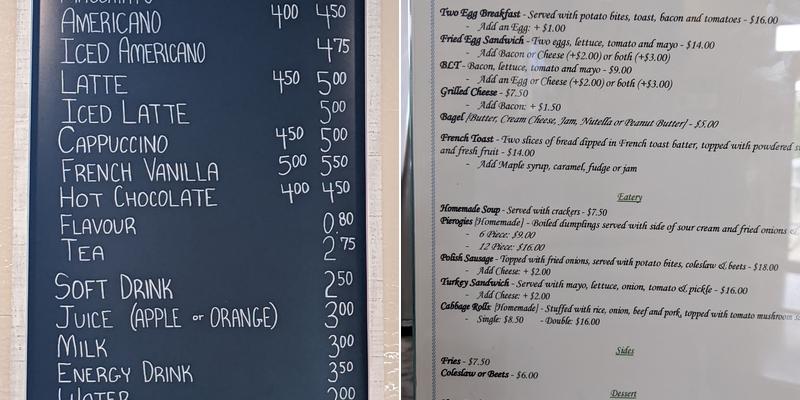 AMERICANO 4.00 4.50
ICED AMERICANO 4.75
LATTE 4.50 5.00
ICED LATTE 5.00
CAPPUCCINO 4.50 5.00
FRENCH VANILLA 5.00 5.50
HOT CHOCOLATE 4.00 4.50
FLAVOUR 0.80
TEA 2.75
SOFT DRINK 2.50
JUICE (APPLE or ORANGE) 3.00
MILK 3.00
ENERGY DRINK 3.50
WATER 2.00
Two Egg Breakfast - Served with potato bites, toast, bacon and tomatoes - $16.00
- Add an Egg: + $1.00
Fried Egg Sandwich - Two eggs, lettuce, tomato and mayo - $14.00
- Add Bacon or Cheese (+$2.00) or both (+$3.00)
BLT - Bacon, lettuce, tomato and mayo - $9.00
- Add an Egg or Cheese (+$2.00) or both (+$3.00)
Grilled Cheese - $7.50
- Add Bacon: + $1.50
Bagel [Butter, Cream Cheese, Jam, Nutella or Peanut Butter] - $5.00
French Toast - Two slices of bread dipped in French toast batter, topped with powdered
and fresh fruit - $14.00
- Add Maple syrup, caramel, fudge or jam
Eatery
Homemade Soup - Served with crackers - $7.50
Pierogies [Homemade] - Boiled dumplings served with side of sour cream and fried onions
- 6 Piece: $9.00
- 12 Piece: $16.00
Polish Sausage - Topped with fried onions, served with potato bites, coleslaw & beets - $18.00
- Add Cheese: + $2.00
Turkey Sandwich - Served with mayo, lettuce, onion, tomato & pickle - $16.00
- Add Cheese: + $2.00
Cabbage Rolls [Homemade] - Stuffed with rice, onion, beef and pork, topped with tomato mushroom
- Single: $8.50 - Double: $16.00
Sides
Fries - $7.50
Coleslaw or Beets - $6.00
Dessert